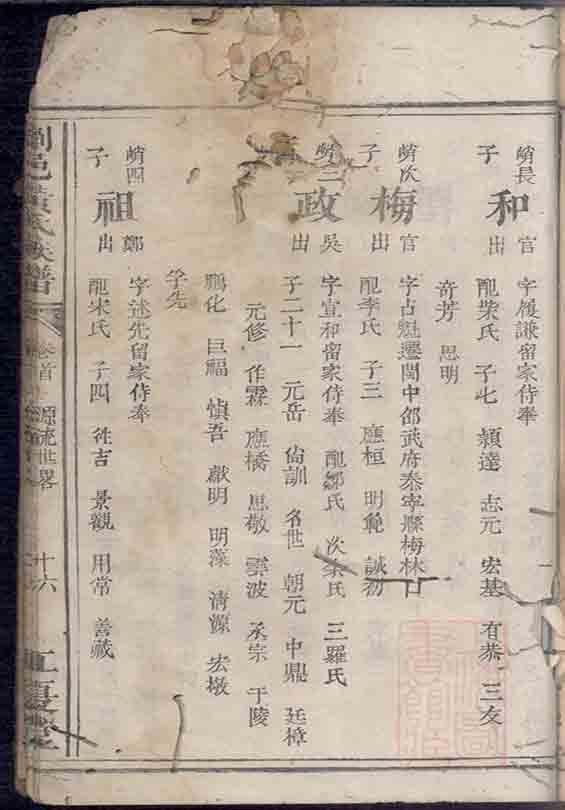 峭長
子
和
官
出
字履謙留家侍奉
配柴氏 子七 穎達 志元 宏基 有恭 三友
奇芳 思明
峭次
子
梅
官
出
字占魁遷閩中邵武府泰寧縣梅林口
配李氏 子三 應桓 明範 誠初
峭三
政
吳
出
字宣和留家侍奉 配鄒氏 次 氏 三羅氏
子二十一 元岳 尚訓 名世 朝元 中鼎 廷樟
元修 作霖 應橋 思敬 雲波 丞宗 于陵
鵬化 巨福 慎吾 獻明 明藻 清源 宏墩
孚先
峭四
子
祖
鄭
出
字述先留家侍奉
配宋氏 子四 徙吉 景觀 用常 善藏
邑黃氏族譜
卷首
源流世畧
十六
江夏堂